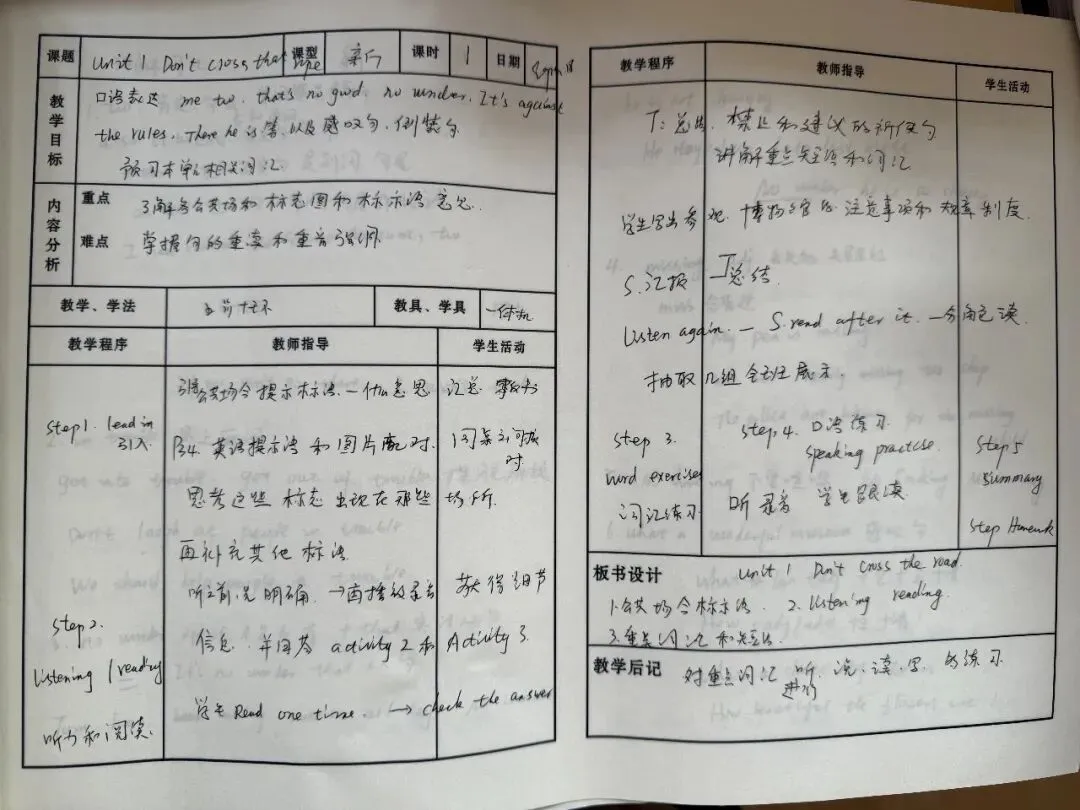 课题 Unit 1 Don't cross that rope 课型 新 课时 1 日期
教学目标
口语表达 me too, that's no good, no wonder, It's against
the rules, There he is 等, 以及感叹句, 倒装句
预习本单元相关词汇.
内容分析
重点 了解各公共场和标志图和标示语意思.
难点 掌握句的重读和重音强调.
教学、学法 教具、学具 一体机
教学程序 教师指导 学生活动
step1. lead in 引入.
公共场合提示标语. 一什么意思 汇总
B4. 英语提示语和图片配对. 词条之间核对
思考这些标志出现在那些场所.
再补充其他标语.
听之前先明确. →直接放录音 获得细节
step 2.
信息. 并回答 activity 2 和 Activity 3.
Listening / reading
学生 Read one time. → check the answer
听力和阅读.
教学程序 教师指导 学生活动
T: 总结. 禁止和建议的祈使句
讲解重点短语和词汇
学生写出参观博物馆的注意事项和规章制度.
S. 汇报 — T 总结.
Listen again. — S. read after it. — 分角色读.
抽取几组全班展示.
step 3. word exercises 词汇练习
step 4. 口语练习 speaking practise.
听录音 学生跟读.
step 5 summary
step Homework
板书设计 Unit 1 Don't cross the road.
1.公共场合标示语. 2. Listening reading.
3.重点词汇和短语.
教学后记 对重点词汇进行听. 说. 读. 写 的练习.